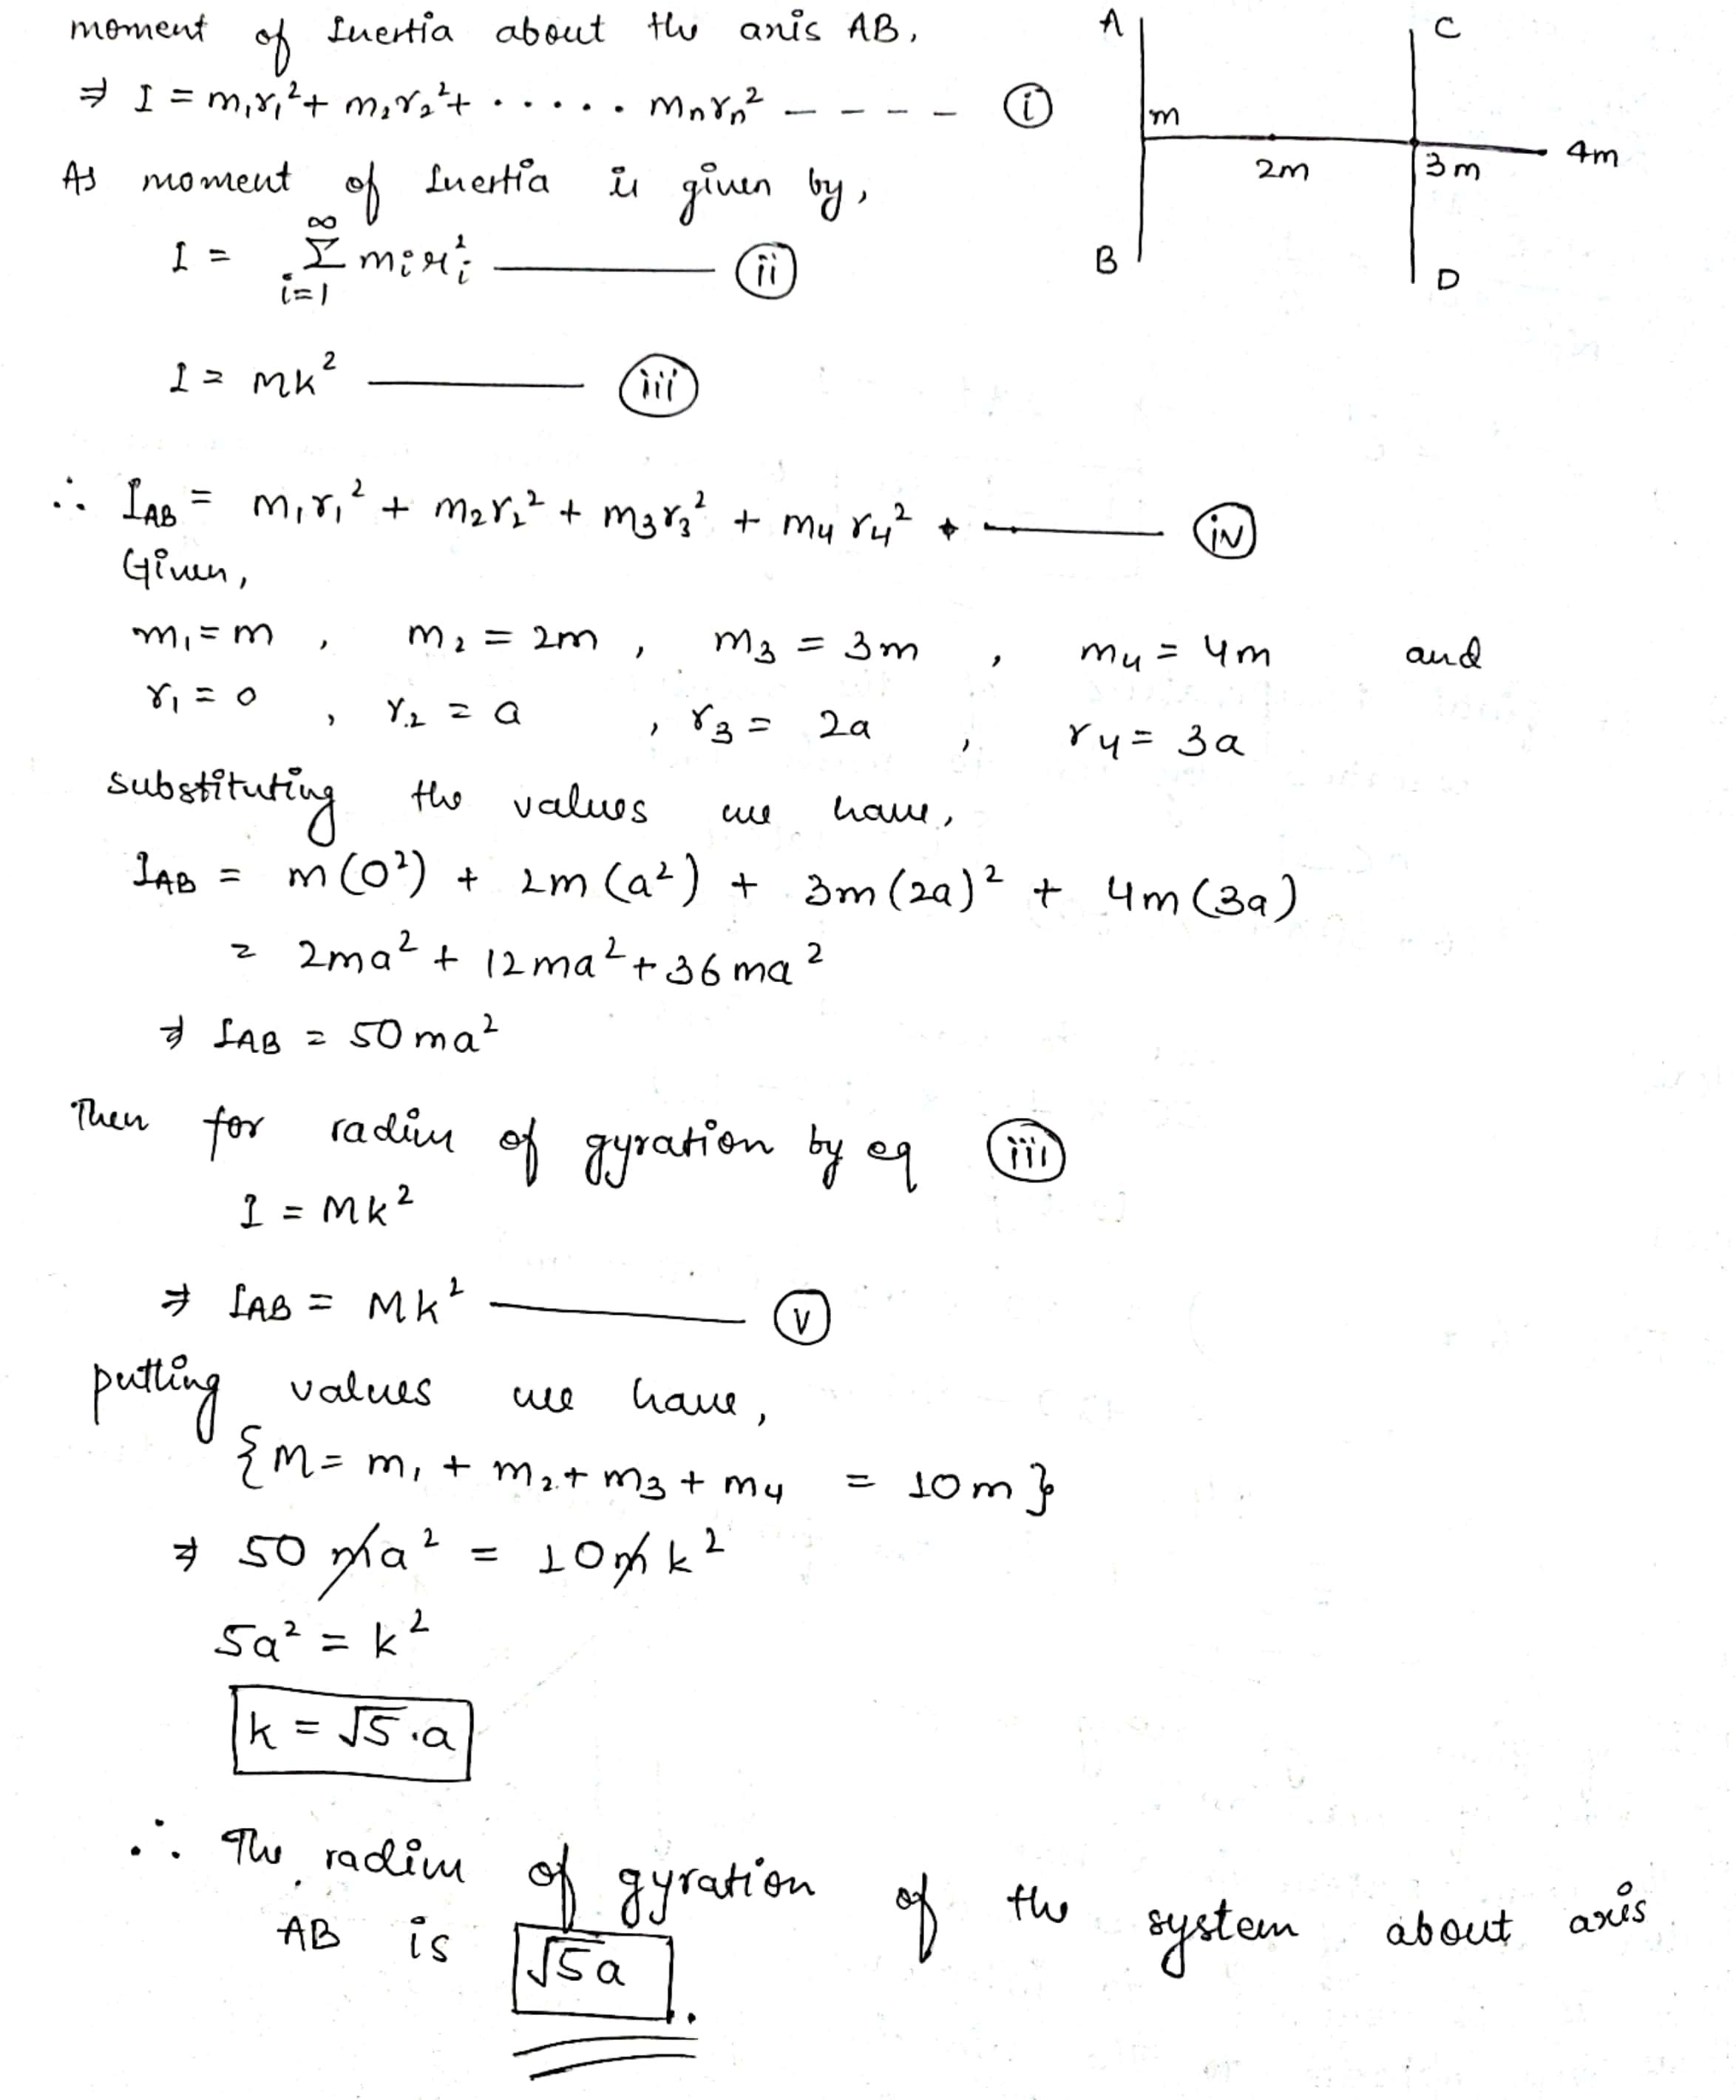 moment of Inertia about the axis AB,
⇒ I = m₁r₁² + m₂r₂² + ..... mₙrₙ² ---- (i)
As moment of Inertia is given by,
I = ∞Σi=1 mᵢrᵢ² ——— (ii)
I = MK² ——— (iii)
A
C
m
2m
3m
4m
B
D
∴ I_AB = m₁r₁² + m₂r₂² + m₃r₃² + m₄r₄² ——— (iv)
Given,
m₁ = m , m₂ = 2m , m₃ = 3m , m₄ = 4m and
r₁ = 0 , r₂ = a , r₃ = 2a , r₄ = 3a
substituting the values we have,
I_AB = m(0²) + 2m(a²) + 3m(2a)² + 4m(3a)
= 2ma² + 12ma² + 36ma²
⇒ I_AB = 50ma²
Then for radius of gyration by eq (iii)
I = MK²
⇒ I_AB = Mk² ——— (v)
putting values we have,
{M = m₁ + m₂ + m₃ + m₄ = 10m}
⇒ 50 ma² = 10m k²
5a² = k²
k = √5.a
∴ The radius of gyration of the system about axis
AB is √5a.